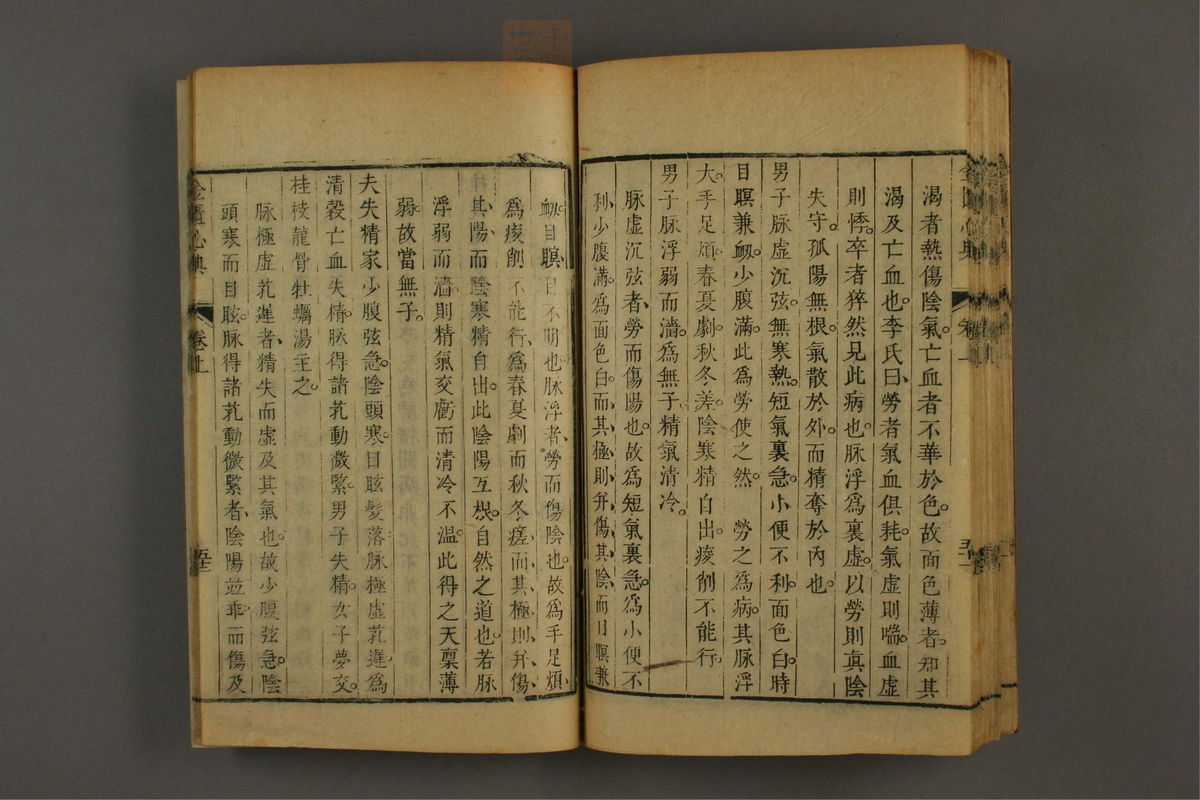 渴者熱傷陰氣。亡血者不華於色。故面色薄者。知其
渴及亡血也。李氏曰、勞者氣血俱耗。氣虛則喘。血虛
則悸。卒者猝然見此病也。脉浮爲裏虛。以勞則眞陰
失守。孤陽無根。氣散於外。而精奪於內也。
男子脉虛沉弦。無寒熱。短氣裏急。小便不利。面色白。時
目瞑兼衂。少腹滿。此爲勞使之然。　勞之爲病。其脉浮
大。手足煩。春夏劇。秋冬差。陰寒精自出。痠削不能行。
男子脉浮弱而濇。爲無子。精氣清冷。
脉虛沉弦者、勞而傷陽也。故爲短氣裏急。爲小便不
利、少腹滿。爲面色白。而其極則幷傷其陰。而目瞑兼
衂。目瞑、目不明也。脉浮者、勞而傷陰也。故爲手足煩、
爲痠削不能行、爲春夏劇而秋冬瘥。而其極則幷傷
其陽。而陰寒精自出。此陰陽互根。自然之道也。若脉
浮弱而濇。則精氣交虧而清冷不溫。此得之天稟薄
弱。故當無子。
夫失精家。少腹弦急。陰頭寒。目眩髮落。脉極虛芤遲。爲
清穀亡血失精。脉得諸芤動微緊。男子失精。女子夢交。
桂枝龍骨牡蠣湯主之。
脉極虛芤遲者、精失而虛及其氣也。故少腹弦急。陰
頭寒而目眩。脉得諸芤動微緊者、陰陽並乖而傷及
金匱心典
卷上